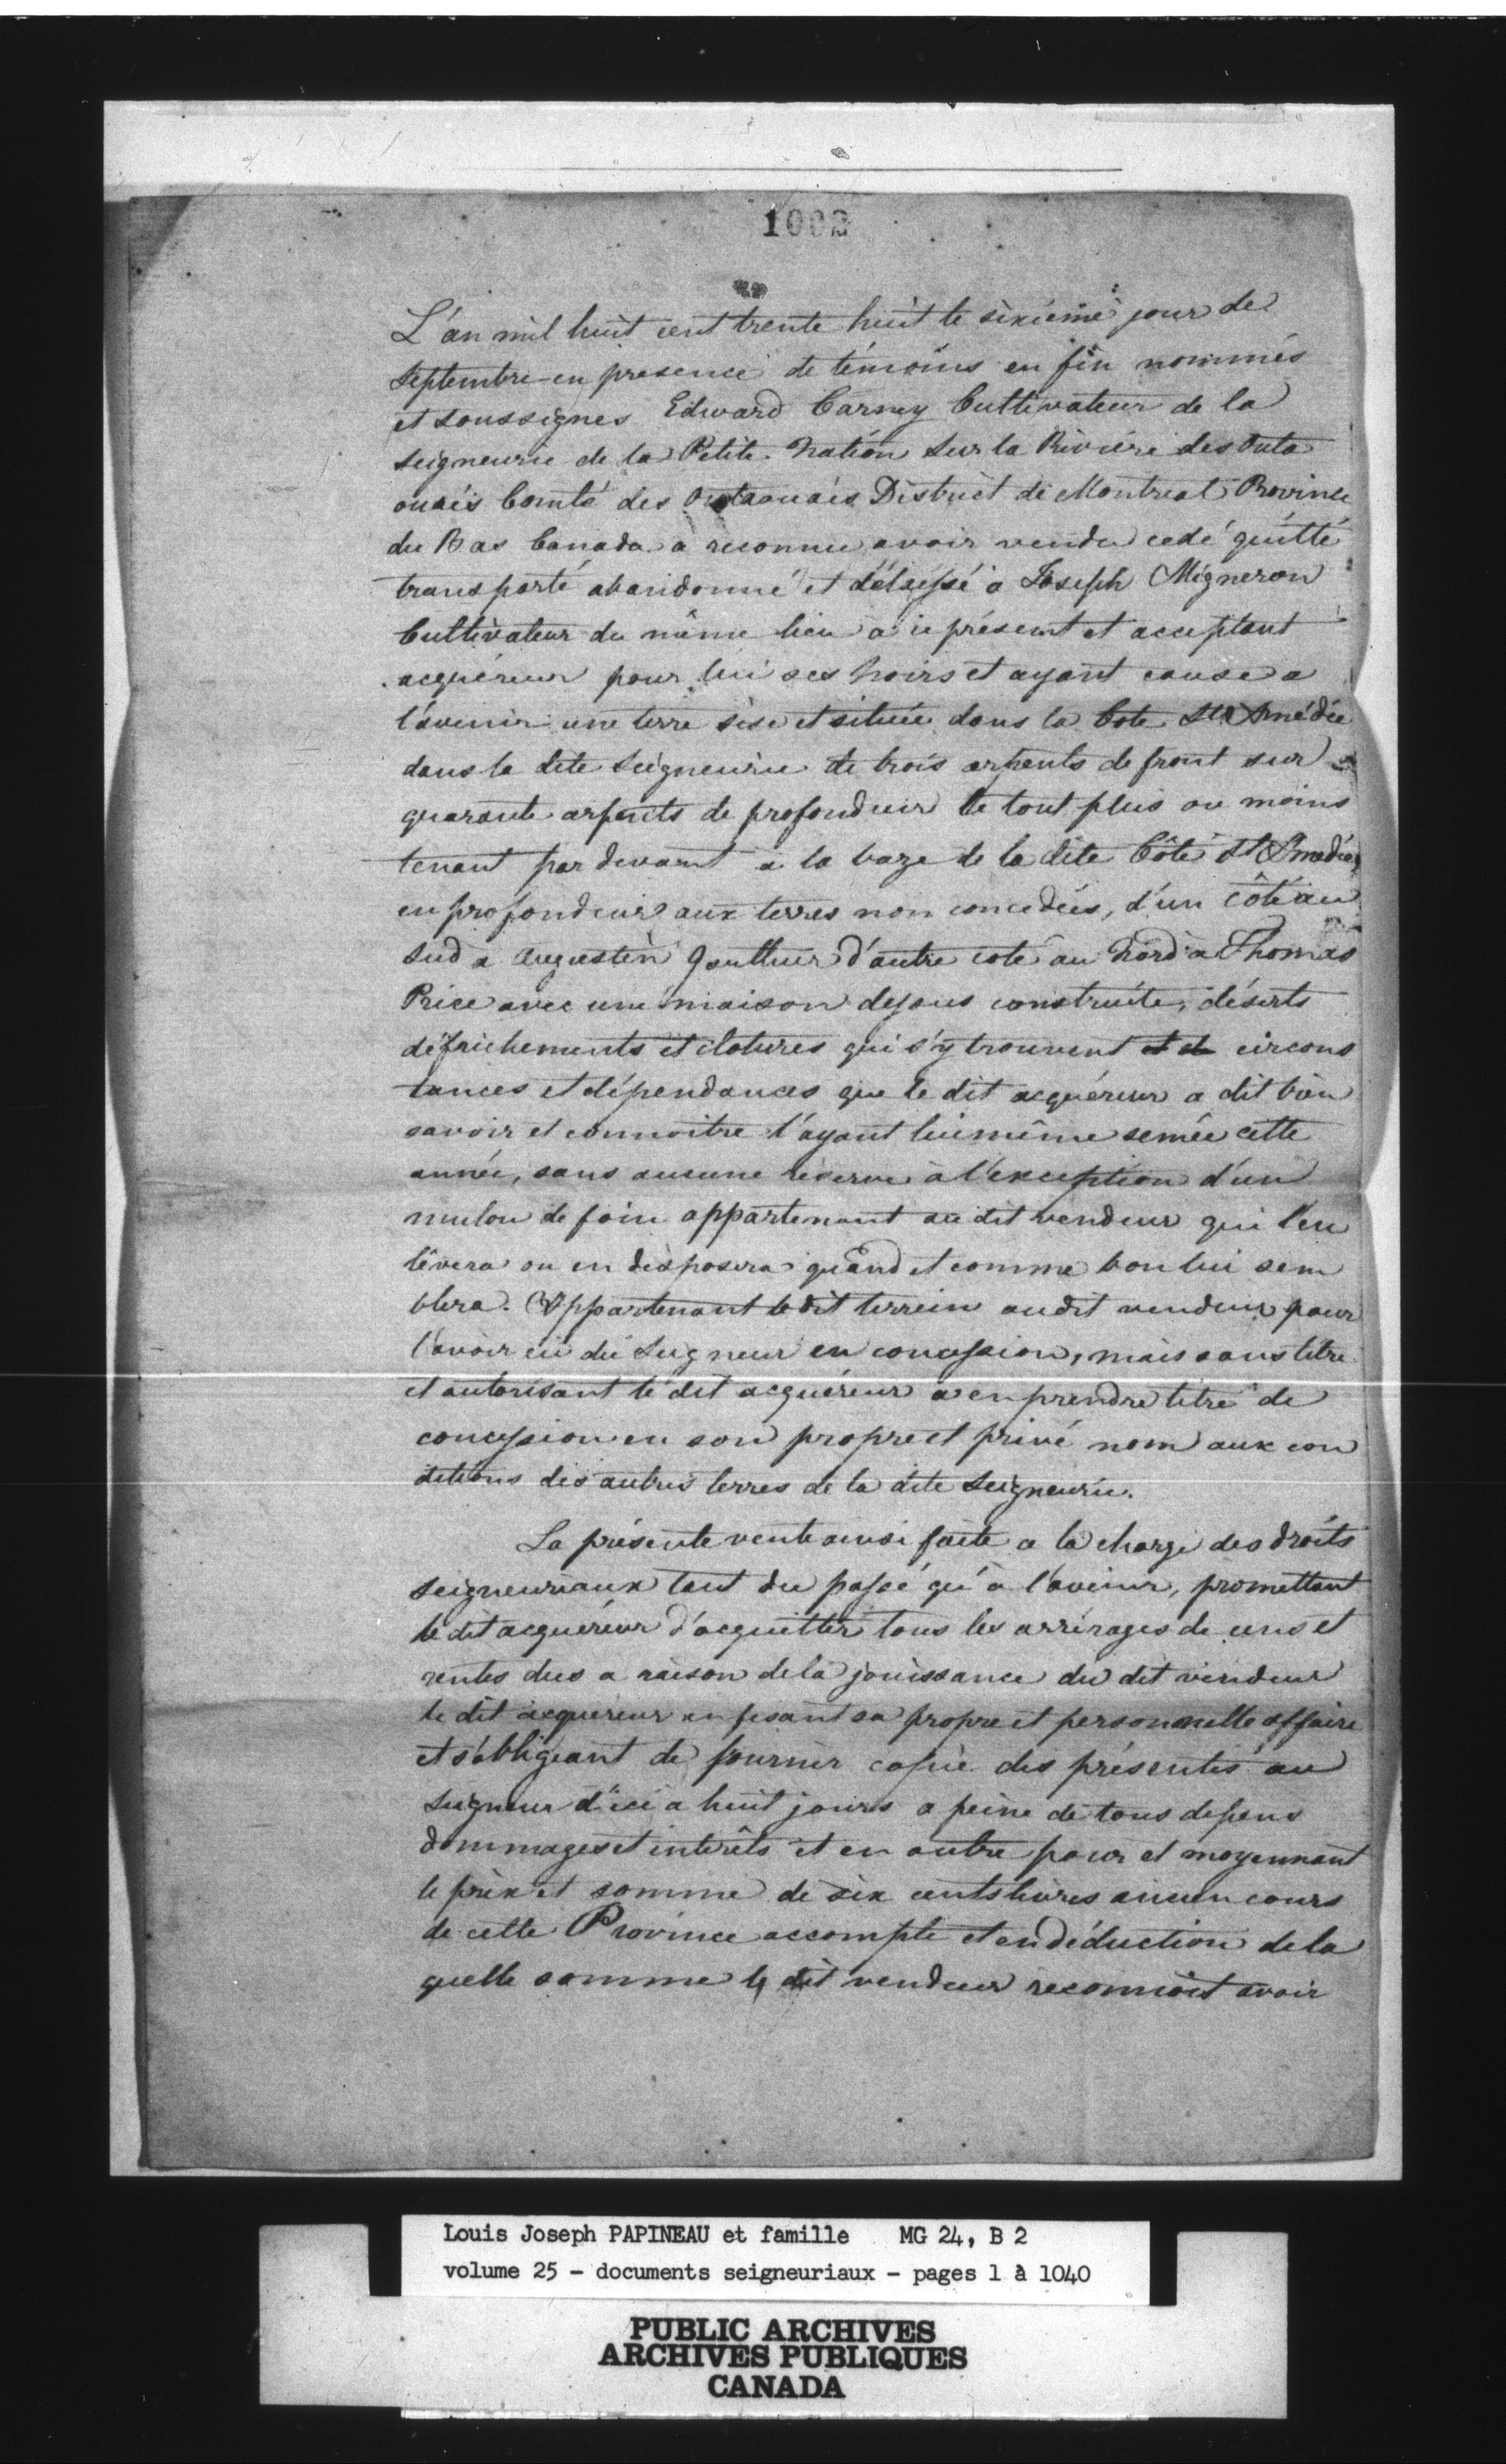 1002
L'an mil huit cent trente huit le sixième jour de
Septembre en presence de témoins en fin nommés
et soussignés Edward Carney Cultivateur de la
Seigneurie de la Petite Nation sur la Rivière des Outa
ouais Comté des Outaouais District de Montreal Province
du Bas Canada a reconnu avoir vendu cedé quitté
transporté abandonné et délaissé à Joseph Migneron
Cultivateur du même lieu à ce présent et acceptant
acquéreur pour lui ses hoirs et ayant cause a
l'avenir une terre sise et située dans la Cote St Amédée
dans la dite Seigneurie de trois arpents de front sur
quarante arpents de profondeur le tout plus ou moins
tenant par devant à la baze de la dite Côte St Amedée
en profondeur aux terres non concedées, d'un côté au
Sud a Augustin Gauthier d'autre coté au Nord à Thomas
Price avec une maison dessus construite, déserts
défrichements et clotures qui s'y trouvent et circons
tances et dépendances que le dit acquéreur a dit bien
savoir et connoitre l'ayant lui même semée cette
année, sans aucune réserve à l'exception d'un
mulon de foin appartenant au dit vendeur qui l'en
lèvera ou en disposera quand et comme bon lui sem
blera. Appartenant le dit terrein audit vendeur pour
l'avoir eu du Seigneur en concession, mais sans titre
et autorisant le dit acquéreur a en prendre titre de
concession en son propre et privé nom aux con
ditions des autres terres de la dite Seigneurie.
La présente vente ainsi faite a la charge des droits
Seigneuriaux tant du passé qu'à l'avenir, promettant
le dit acquéreur d'acquitter tous les arrérages de cens et
rentes dus a raison de la jouissance du dit vendeur
le dit acquereur en fesant sa propre et personnelle affaire
et s'obligeant de fournir copie des présentes au
Seigneur d'ici a huit jours a peine de tous depens
dommages et interêts et en outre pour et moyennant
le prix et somme de six cents livres ancien cours
de cette Province accompte et en déduction de la
quelle somme le dit vendeur reconnoit avoir
Louis Joseph PAPINEAU et famille MG 24, B 2
volume 25 - documents seigneuriaux - pages 1 à 1040
PUBLIC ARCHIVES
ARCHIVES PUBLIQUES
CANADA